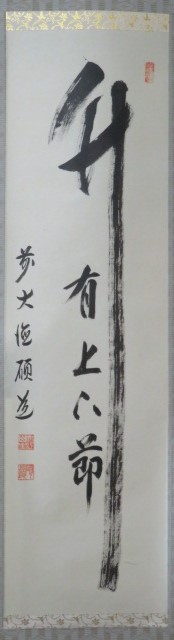 竹 有上下節
前大徳碩道